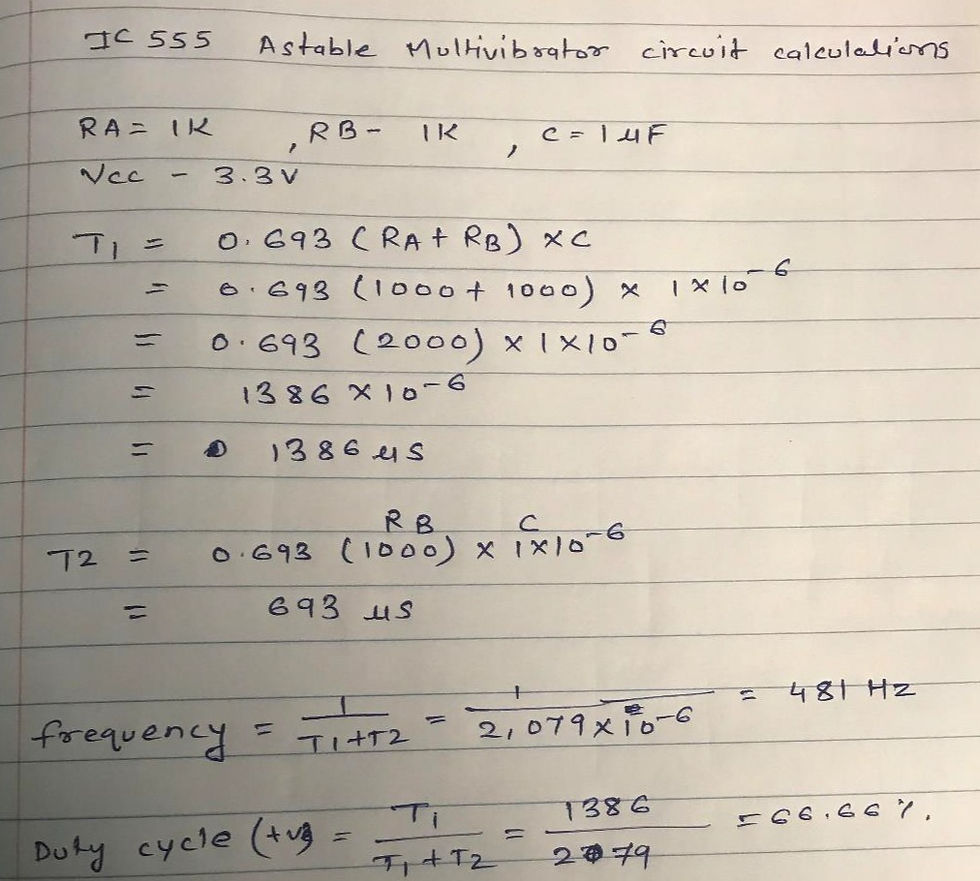 IC 555 Astable Multivibrator circuit calculations
RA = 1K , RB - 1K , C = 1 µF
Vcc - 3.3 V
T1 = 0.693 (RA + RB) × C
= 0.693 (1000 + 1000) × 1 × 10^-6
= 0.693 (2000) × 1 × 10^-6
= 1386 × 10^-6
= 1386 µs
RB C
T2 = 0.693 (1000) × 1×10^-6
= 693 µs
frequency = 1/(T1+T2) = 1/(2,079 × 10^-6) = 481 Hz
Duty cycle (+ve) = T1/(T1 + T2) = 1386/2079 = 66.66 %.